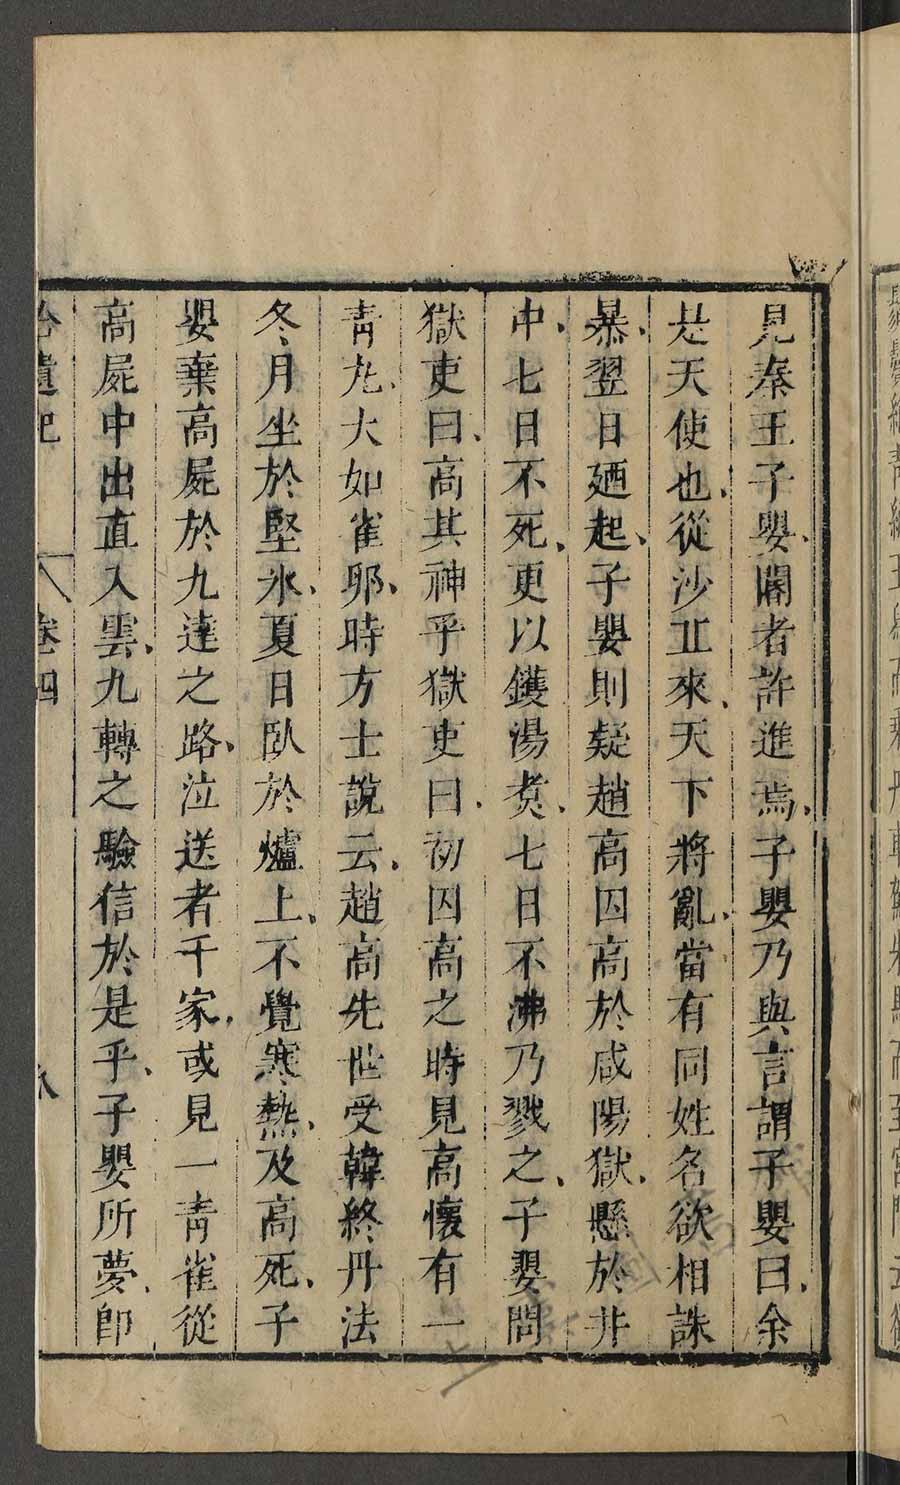 見秦王子嬰閽者許進焉子嬰乃與言謂子嬰曰余
是天使也從沙丘來天下將亂當有同姓名欲相誅
暴翌日廼起子嬰則疑趙高囚高於咸陽獄懸於井
中七日不死更以鑊湯煑七日不沸乃戮之子嬰問
獄吏曰高其神乎獄吏曰初囚高之時見高懷有一
青丸大如雀卵時方士說云趙高先世受韓終丹法
冬月坐於堅氷夏日臥於爐上不覺寒熱及高死子
嬰棄高屍於九達之路泣送者千家或見一青雀從
高屍中出直入雲九轉之驗信於是乎子嬰所夢即
拾遺記 卷四 八